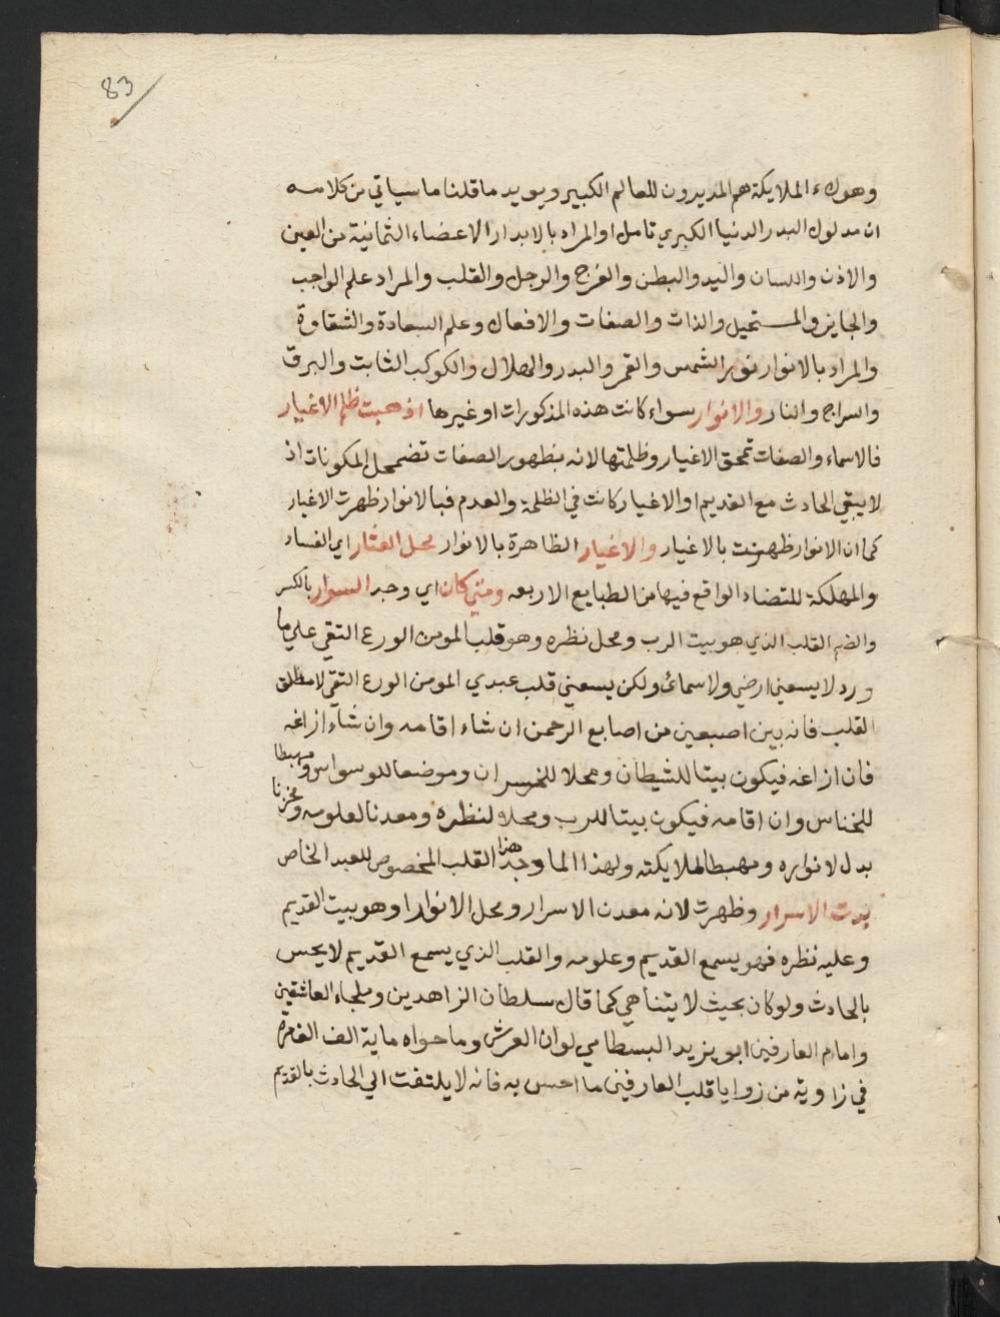 83
وهولاء الملايكة هم المديرون للعالم الكبير ويويد ما قلنا ما سياتي من كلامه
ان مدلول البدر الدنيا الكبري تامل او المراد بالابدار الاعضاء الثمانية من العين
والاذن واللسان واليد والبطن والفرج والرجل والقلب والمراد علم الواجب
والجايز والمستحيل والذات والصفات والافعال وعلم السعادة والشقاوة
والمراد بالانوار نور الشمس والقمر والبدر والهلال والكوكب الثابت والبرق
والسراج والنار والانوار سواء كانت هذه المذكورات او غيرها اذهبت ظلم الاغيار
فالاسماء والصفات تمحق الاغيار وظلمتها لانه بظهور الصفات تضمحل المكونات اذ
لا يبقي الحادث مع القديم او الاغيار كانت في الظلمة والعدم فبالانوار ظهرت الاغيار
كما ان الانوار ظهرت بالاغيار والاغيار الظاهرة بالانوار محل العثار اي الفساد
والمهلكة للتضاد الواقع فيها من الطبايع الاربعه ومتي كان اي وجد السوار بالكسر
والضم القلب الذي هو بيت الرب ومحل نظره وهو قلب المومن الورع التقي علي ما
ورد لا يسعني ارضي ولا سمائ ولكن يسعني قلب عبدي المومن الورع التقي لا مطلق
القلب فانه بين اصبعين من اصابع الرحمن ان شاء اقامه وان شآء ازاغه
فان ازاغه فيكون بيتا للشيطان ومحلا للخسران وموضعا للوسواس ومهبطا
للخناس وان اقامه فيكون بيتا للرب ومحلا لنظره ومعدنا لعلومه ومخزنا
بدل لانواره ومهبطا لملايكته ولهذا لما وجد هذا القلب المخصوص للعبد الخاص
بدت الاسرار وظهرت لانه معدن الاسرار ومحل الانوار او هو بيت القديم
وعليه نظره فهو يسمع القديم وعلومه والقلب الذي يسمع القديم لا يحس
بالحادث ولو كان بحيث لا يتناهي كما قال سلطان الزاهدين وملجاء العاشقين
وامام العارفين ابو يزيد البسطامي لو ان العرش وما حواه ماية الف الف مرة
في زاوية من زوايا قلب العارفين ما احس به فانه لا يلتفت الي الحادث بالقديم